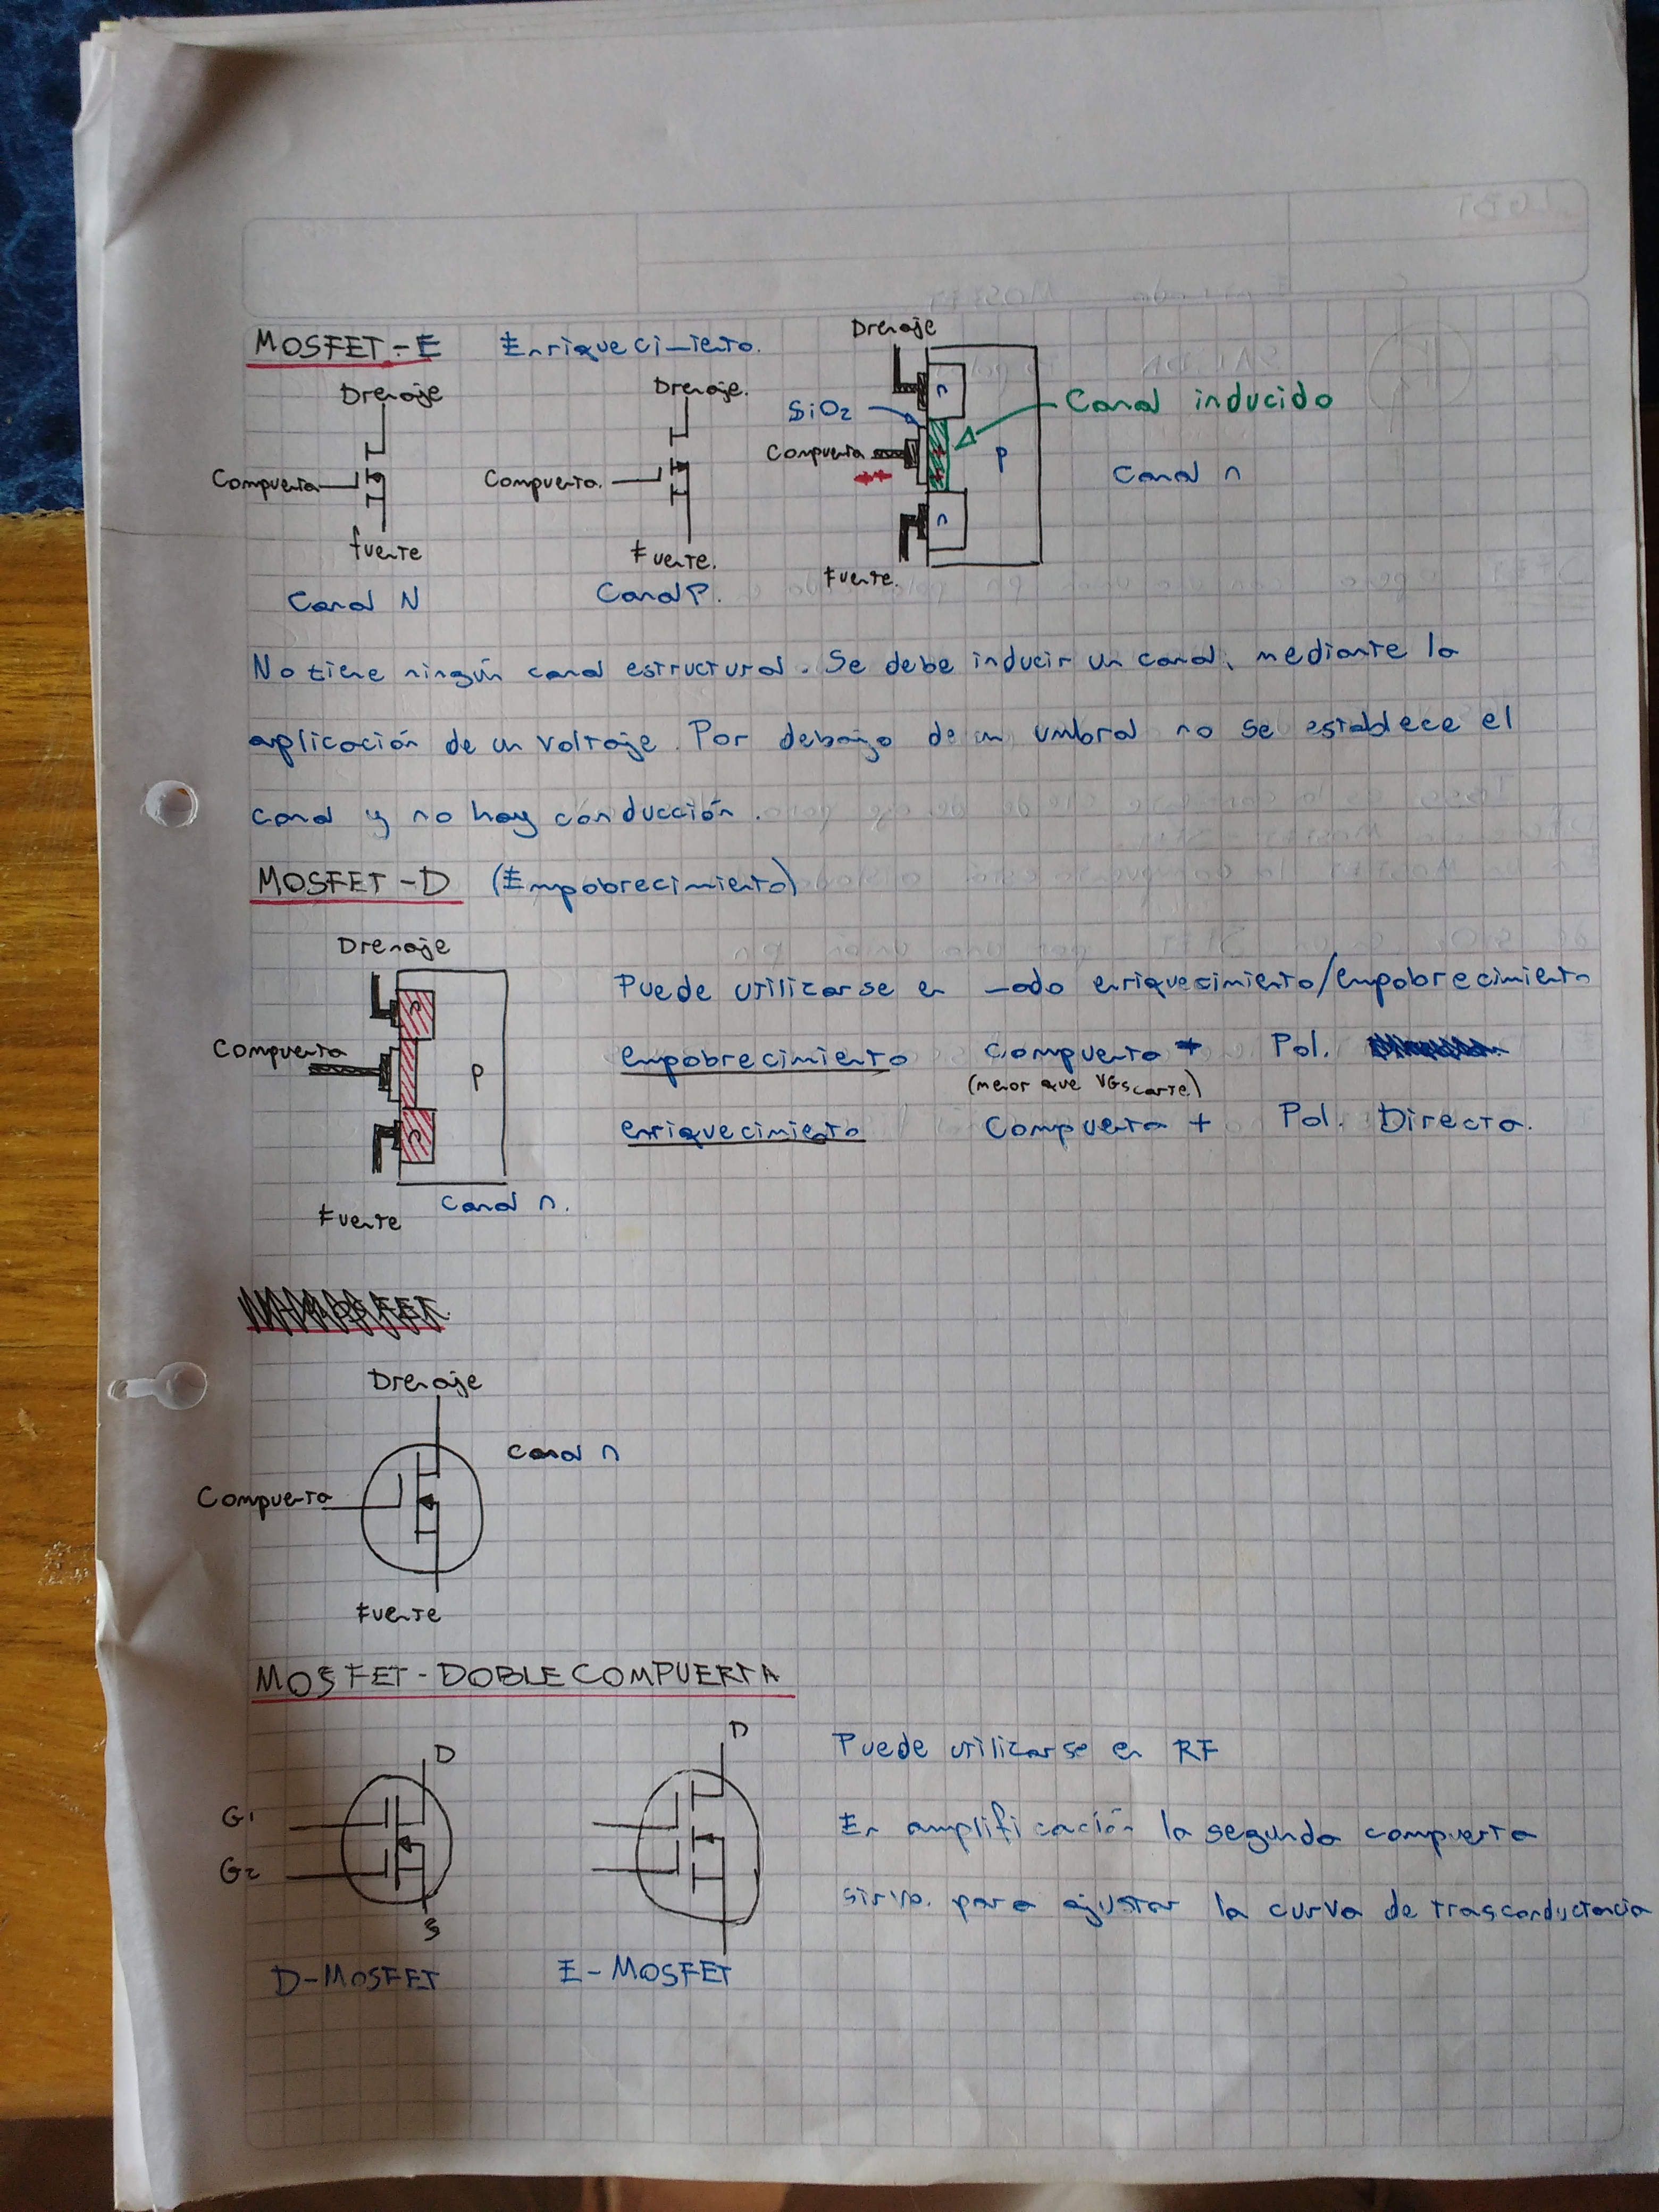 MOSFET-E Enriquecimiento.
Drenaje
Compuerta
fuerte
Canal N
Drenaje.
Compuerta.
Fuente.
Canal P.
Drenaje
SiO2
Compuerta
Fuente.
n
n
p
Canal inducido
Canal n
No tiene ningún canal estructural. Se debe inducir un canal, mediante la
aplicación de un voltaje. Por debajo de un umbral no se establece el
canal y no hay conducción.
MOSFET-D (Empobrecimiento)
Drenaje
Compuerta
n
p
n
Fuente
Canal n.
Puede utilizarse en modo enriquecimiento/empobrecimiento
empobrecimiento Compuerta Pol.
(menor que VGScorte)
enriquecimiento Compuerta + Pol. Directa.
Drenaje
Canal n
Compuerta
Fuente
MOSFET-DOBLE COMPUERTA
D
G1
G2
S
D-MOSFET
D
E-MOSFET
Puede utilizarse en RF
En amplificación la segunda compuerta
sirve para ajustar la curva de trasconductancia